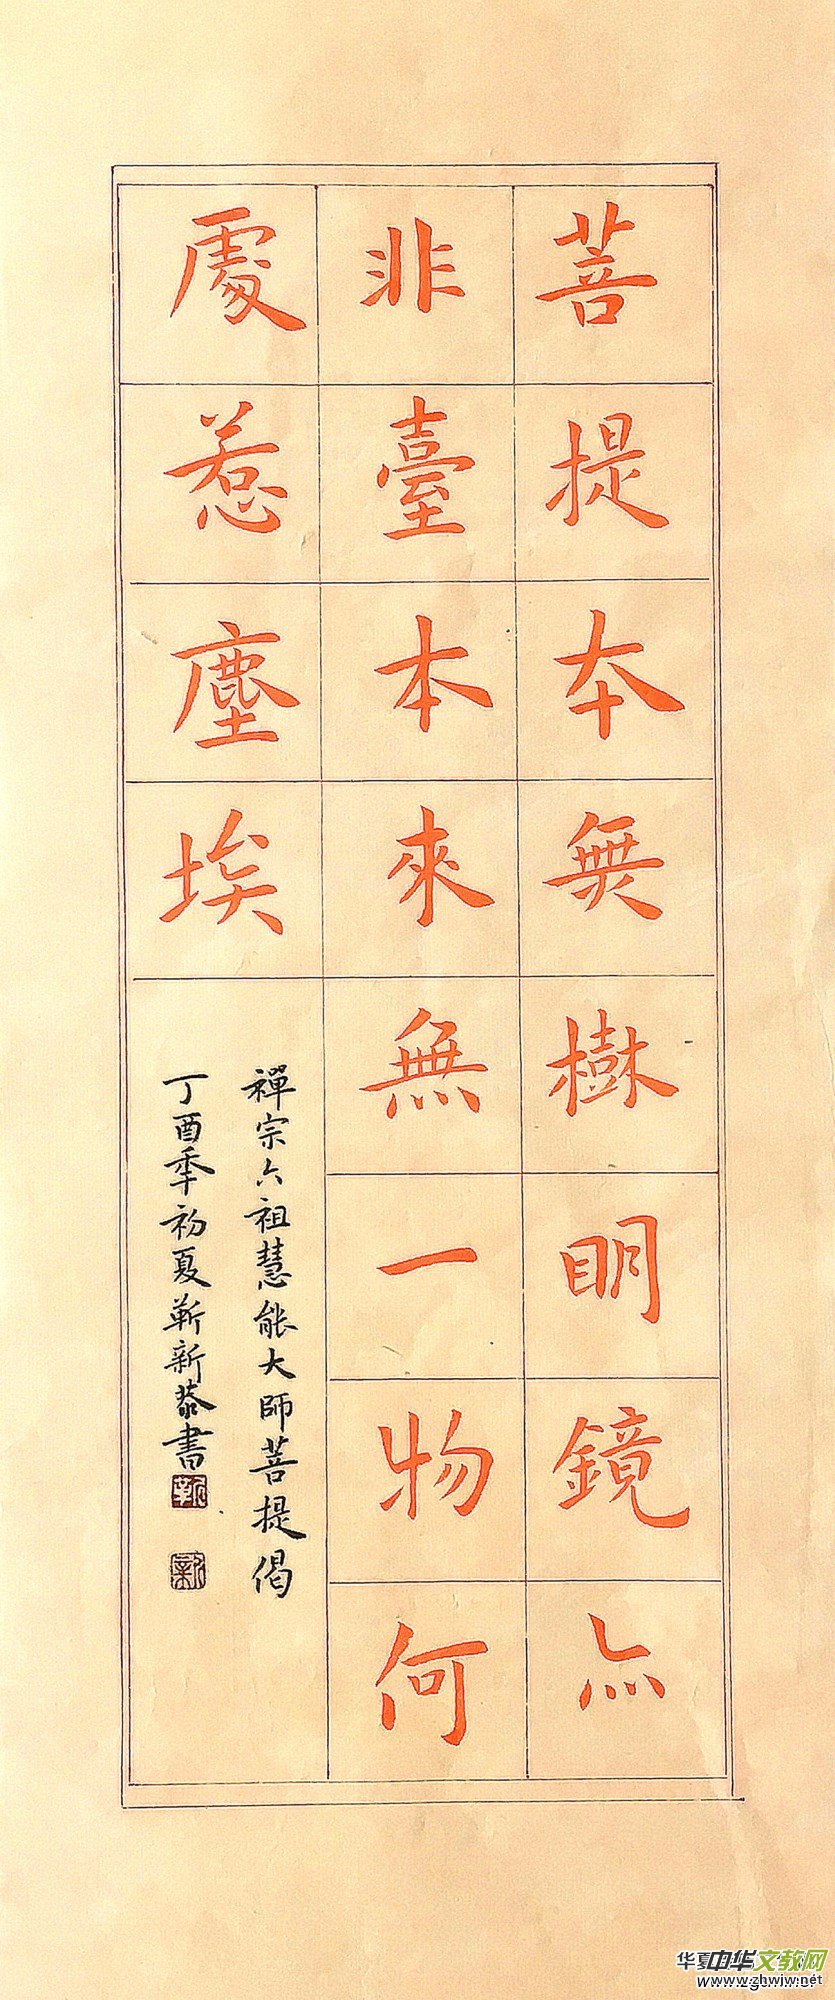 菩提本無樹明鏡亦
非臺本來無一物何
處惹塵埃
禪宗六祖慧能大師菩提偈
丁酉年初夏靳新恭書
中华文教网
www.zhwjw.net